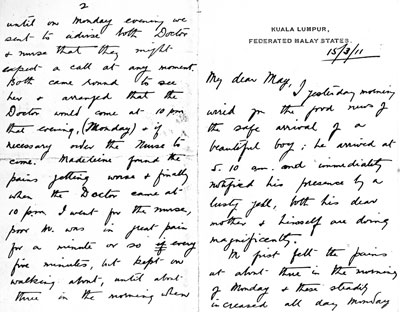 KUALA LUMPUR,
FEDERATED MALAY STATES.
15/3/11
My dear May,
I yesterday morning
wired you the good news of
the safe arrival of a
beautiful boy: he arrived at
5.10 am. and immediately
notified his presence by a
lusty yell, both his dear
mother & himself are doing
magnificently.
M first felt the pains
at about three in the morning
of Monday & these steadily
increased all day Monday
2
until on Monday evening we
sent to advise both Doctor
& nurse that they might
expect a call at any moment.
Both came round to see
her & arranged that the
Doctor would come at 10 pm
that evening, (Monday) & if
necessary order the nurse to
come. Madeleine found the
pains getting worse & finally
when the Doctor came at
10 pm I went for the nurse,
poor M. was in great pain
for a minute or so every
five minutes, but kept on
walking about, until about
three in the morning when